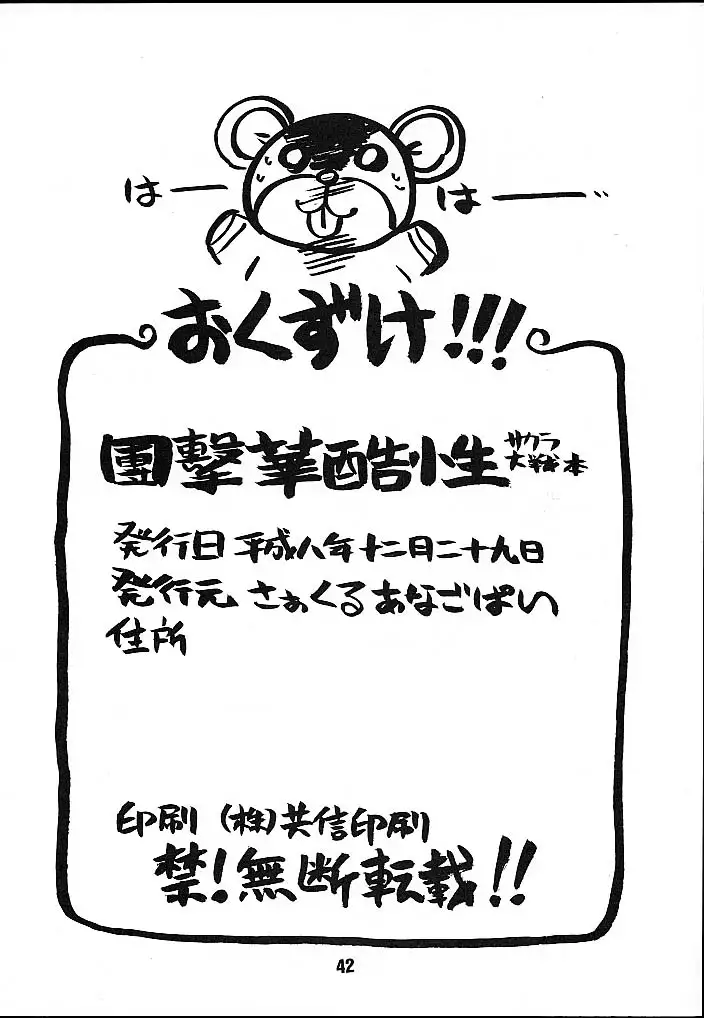 はー はー
おくずけ!!!
團撃華酷小生 サクラ大戦本
発行日 平成八年十二月二十九日
発行元 さぁくるあなごぱい
住所
印刷 (株)共信印刷
禁!無断転載!!
42